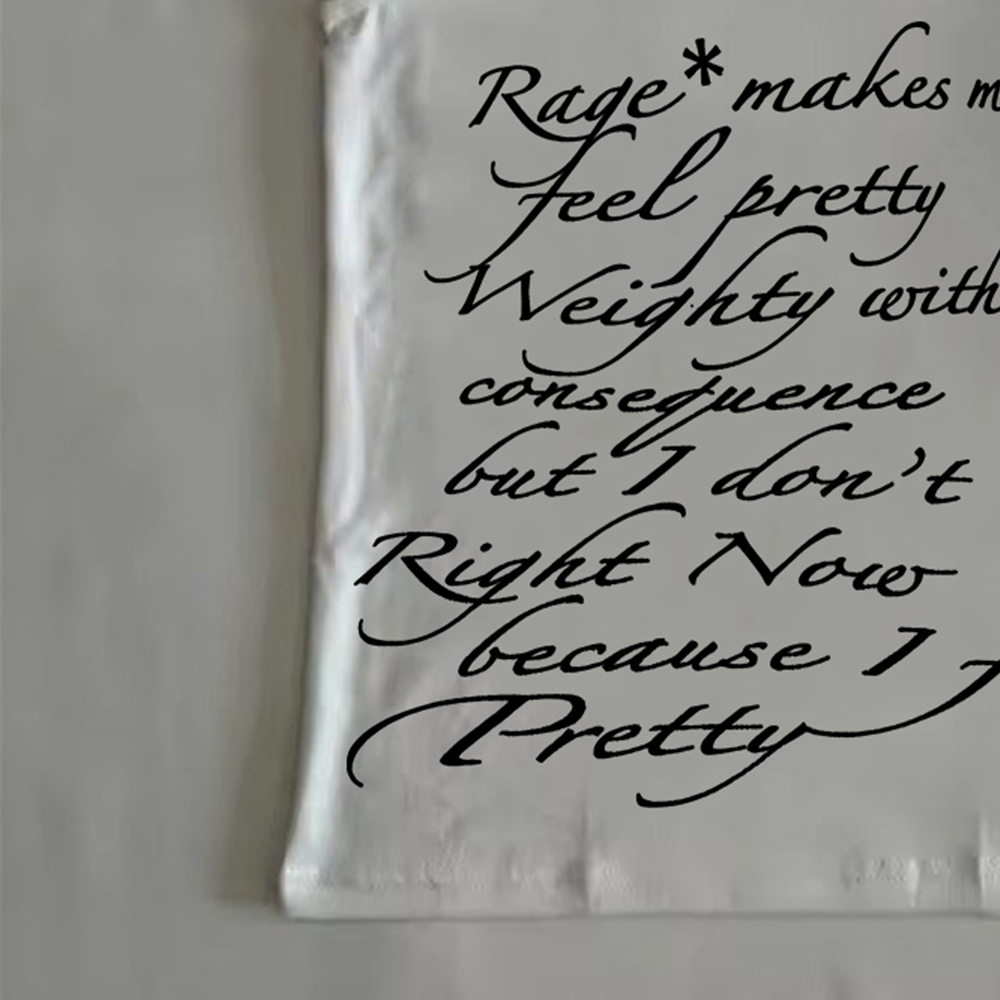 Rage* makes m
feel pretty
Weighty with
consequence
but I don't
Right Now
because I f
Pretty